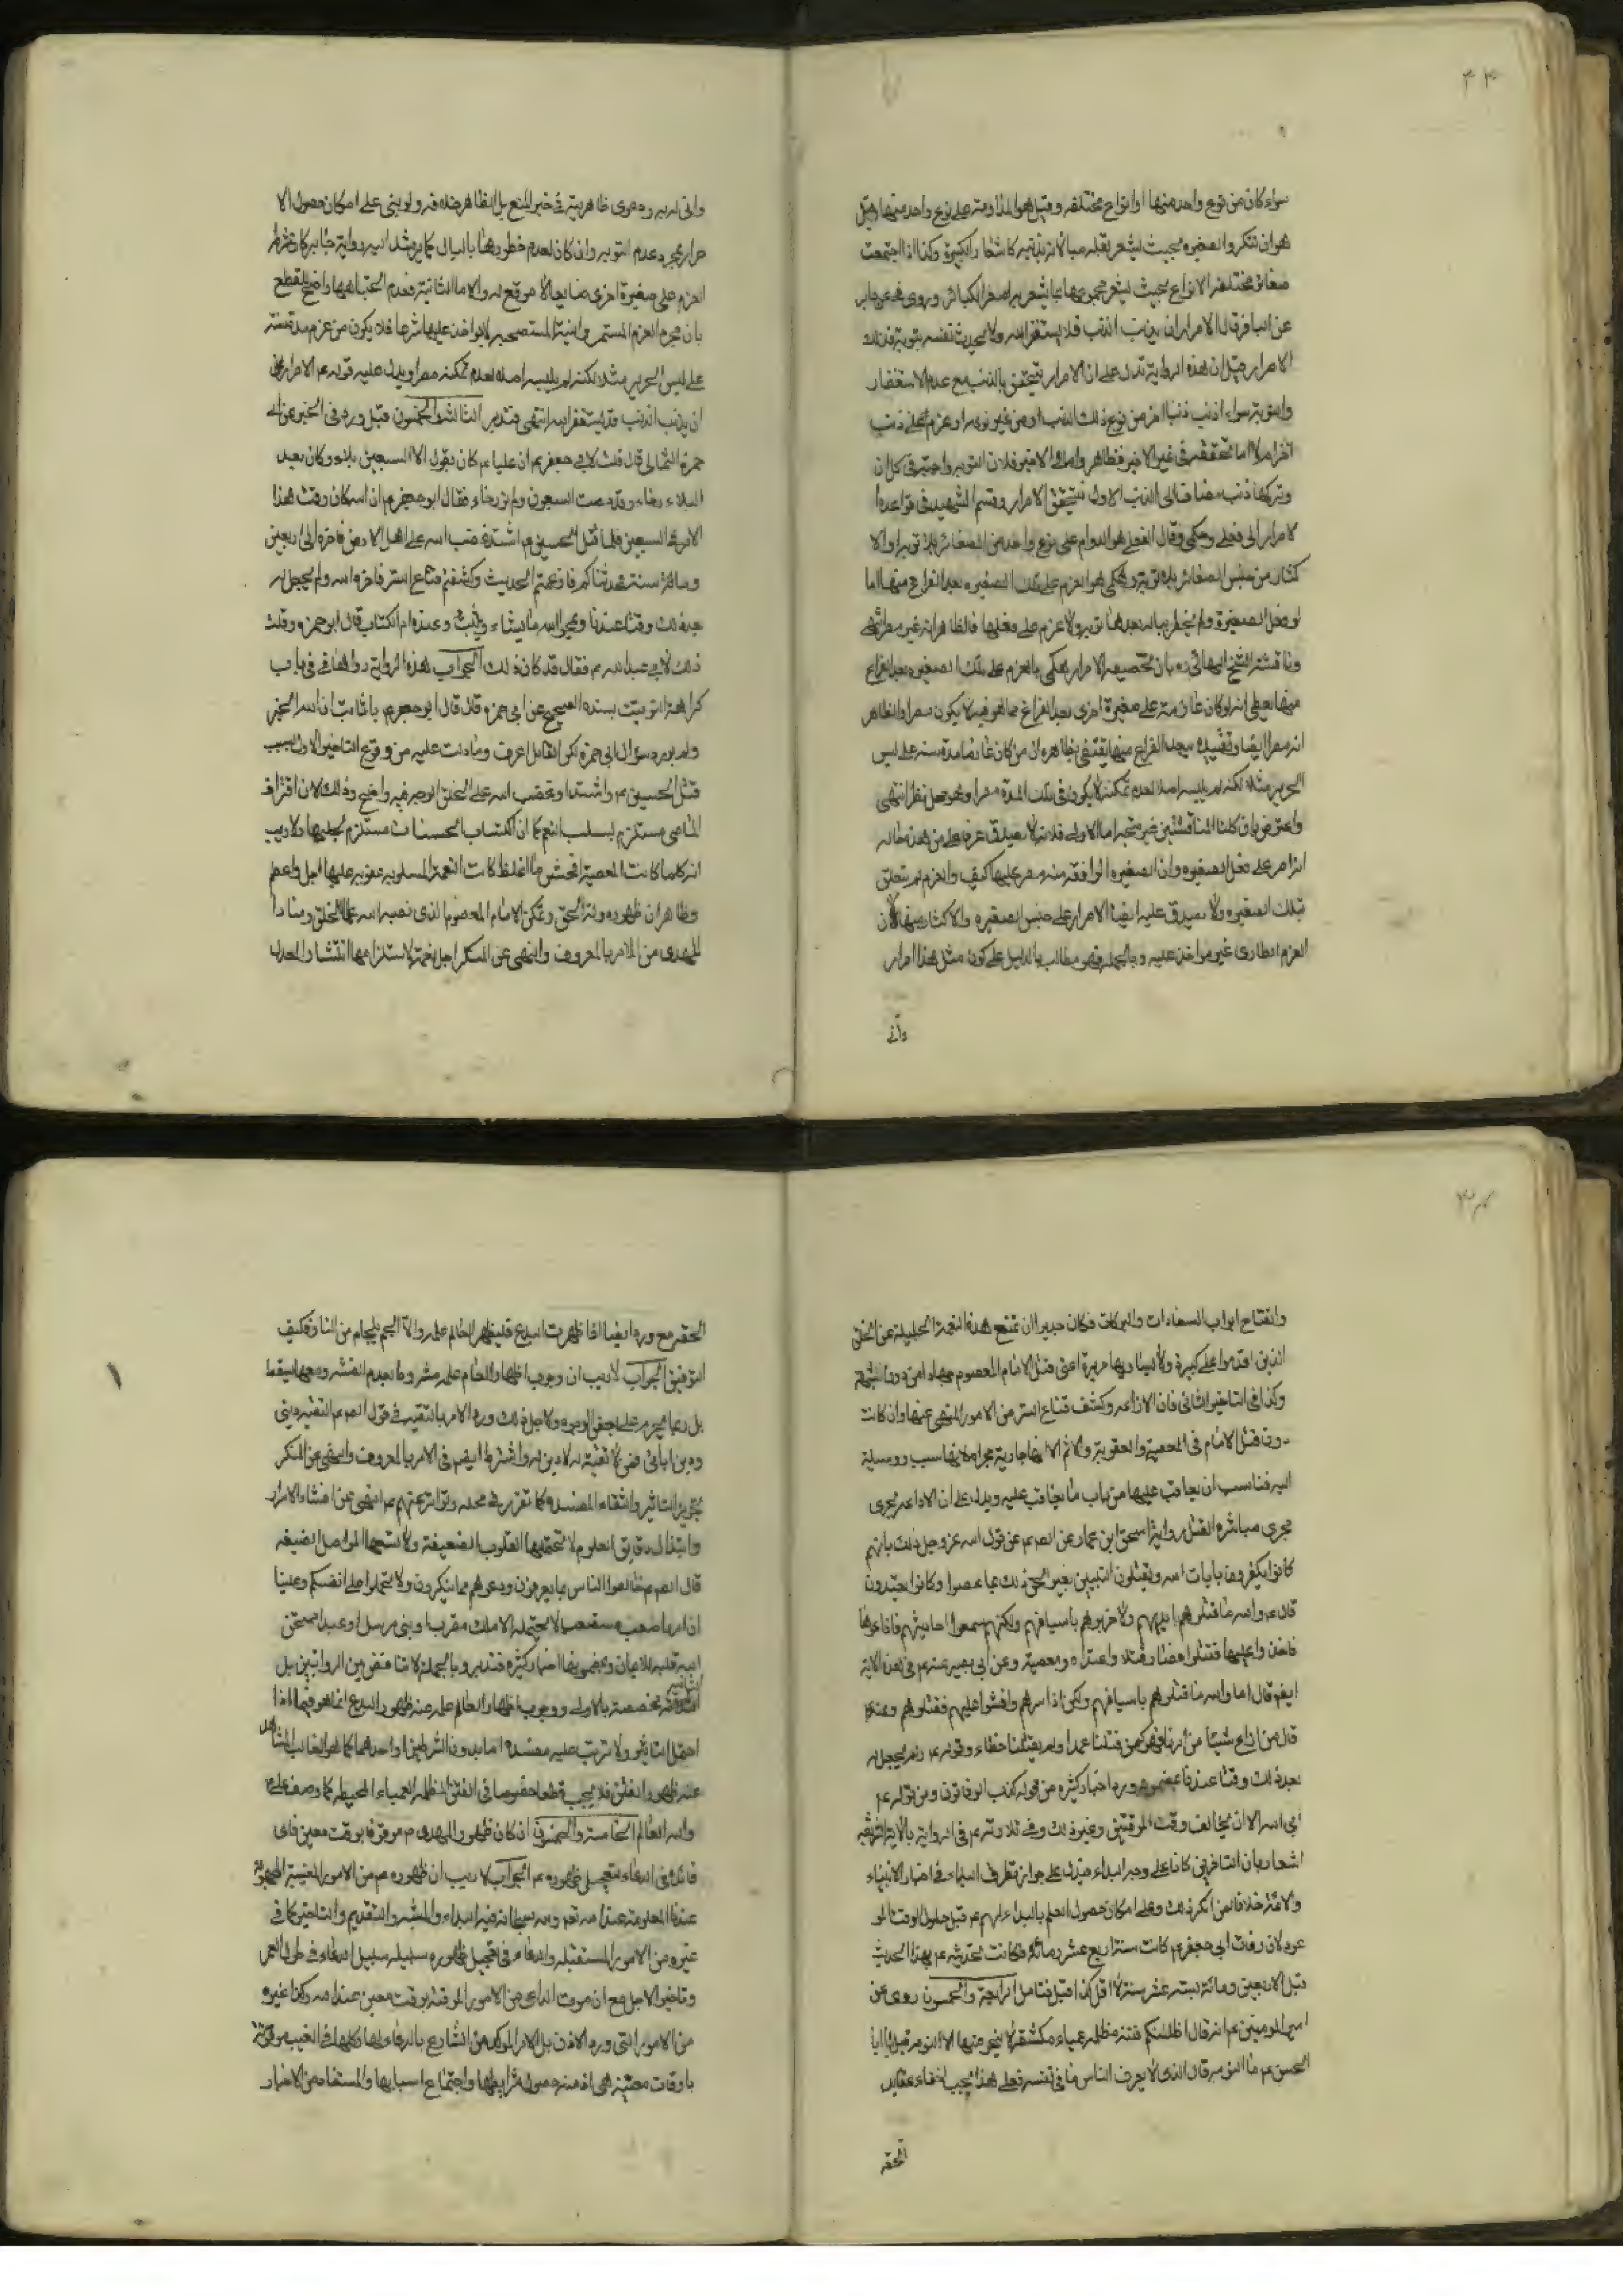 سواء كان من نوع واحد منها او انواع مختلفه وقيل هو المداومة على نوع واحد منها وقيل
هو ان تتكرر الصغيره بحيث يشعر بقلة مبالاته بدينه كاشعار الكبيرة وكذا اذا اجتمعت
صغائر مختلفة الانواع بحيث يشعر مجموعها بما يشعر به اصغر الكبائر وروى عن جابر
عن الباقر قال الاصرار ان يذنب الذنب فلا يستغفر الله ولا يحدث نفسه بتوبة فذلك
الاصرار قيل ان هذه الرواية تدل على ان الاصرار يتحقق بالذنب مع عدم الاستغفار
والتوبة سواء اذنب ذنبا اخر من نوع ذلك الذنب او من غير نوعه او عزم على ذنب
اخر ام لا اما تحققه في غير الاخير فظاهر واما في الاخير فلان التوبه واجبة في كل ان
وتركها ذنب مضاف الى الذنب الاول فيتحقق الاصرار وقسم الشهيد في قواعده ا
لاصرار الى فعلي وحكمي وقال الفعلي هو الدوام على نوع واحد من الصغائر بلا توبه او الا
كثار من جنس الصغائر بلا توبة والحكمي هو العزم على تلك الصغيره بعد الفراغ منها اما
لو فعل الصغيرة ولم يخطر بباله بعدها توبه ولا عزم على فعلها فالظاهر انه غير مصر انتهى
وناقشه الشيخ البهائي ره بان تخصيصه الاصرار الحكمي بالعزم على تلك الصغيره بعد الفراغ
منها يعطي انه لو كان عازمة على صغيرة اخرى بعد الفراغ مما هو فيه لا يكون مصرا والظاهر
انه مصر ايضا وتقييده ببعد الفراغ منها يقتضي بظاهره ان من كان عازما مدة سنه على لبس
الحرير مثلا لكنه لم يلبسه اصلا لعدم تمكنه لا يكون في تلك المدة مصرا وهو محل نظر انتهى
واعترض بان كلتا المناقشتين غير متجه اما الاولى فلانه لا يصدق عرفا على من هذه حاله
انه اصر على فعل الصغيره وان الصغيره الواقعه منه مصر عليها كيف والعزم لم يتعلق
بتلك الصغيره ولا يصدق عليه ايضا الاصرار على جنس الصغيره والاكثار منها لان
العزم الطارى غير مواخذ عليه وبالجمله فهو مطالب بالدليل على كون مثل هذا اصرار
وانى
وانى له به ودعوى ظاهريته في خبر المنع بل الظاهر خلافه ولو بنى على امكان حصول الا
صرار بمجرد عدم التوبه وان كان لعدم خطورها بالبال كما يرشد اليه رواية جابر كان
العزم على صغيرة اخرى ضايعا لا موقع له واما الثانية فعدم اتجاهها واضح للقطع
بان مجرد العزم المستمر والنية المستصحبه لا يواخذ عليها شرعا فلا يكون من عزم مدة سنة
على لبس الحرير مثلا لكنه لم يلبسه اصلا لعدم تمكنه مصرا ويدل عليه قوله ع الاصرار
ان يذنب الذنب فلا يستغفر الله انتهى فتدبر الثالثة والخمسون قيل ورد في الخبر عن ابي
حمزة الثمالي قال قلت لابي جعفر ع ان عليا ع كان يقول الى السبعين بلاء وكان بعد
البلاء رخاء وقد مضت السبعون ولم نر رخاء فقال ابو جعفر ع ان الله كان وقت هذا
الامر في السبعين فلما قتل الحسين ع اشتد غضب الله على اهل الارض فاخره الى اربعين
ومائة سنة فحدثناكم فاذعتم الحديث وكشفتم قناع الستر فاخره الله ولم يجعل له
بعد ذلك وقتا عندنا ويمحو الله ما يشاء ويثبت وعنده ام الكتاب قال ابو حمزه وقلت
ذلك لابي عبد الله ع فقال قد كان ذلك الجواب هذه الرواية رواها في باب
كراهة التوقيت بسنده الصحيح عن ابي حمزه قال قال ابو جعفر ع يا ثابت ان الله الخبر
ولم يورد سؤال ابي حمزة لكن القائل اعرف وما دلت عليه من وقوع التاخير الاول بسبب
قتل الحسين ع واشتداد غضب الله على الخلق الوجه فيه واضح وذلك لان اقتراف
المعاصي مستلزم لسلب النعم كما ان اكتساب الحسنات مستلزم لجلبها ولا ريب
انه كلما كانت المعصية افحش واغلظ كانت النعمة المسلوبه عقوبه عليها اجل واعظم
وظاهر ان ظهور دولة الحق وتمكن الامام المعصوم الذى نصبه الله علما للخلق ومنارا
للهدى من الامر بالمعروف والنهي عن المنكر اجل نعمة لاستلزامها انتشار العدل
وانفتاح ابواب السعادات والبركات فكان جديرا ان تمنع هذه النعمة الجليلة عن الخلق
الذين اقدموا على كبيرة ولا يساويها جريرة اعني قتل الامام المعصوم
وكذا في التاخير الثاني فان الاذاعه وكشف قناع الستر من الامور المنهي عنها وان كانت
دون قتل الامام في المعصية والعقوبة والاثم الا انها جارية مجراه لانها سبب ووسيلة
اليه فناسب ان يعاقب عليها من باب ما يعاقب عليه ويدل على ان الاذاعه تجرى
مجرى مباشرة القتل رواية اسحق ابن عمار عن الصم ع عن قول الله عز وجل ذلك بانهم
كانوا يكفرون بايات الله ويقتلون النبيين بغير الحق ذلك بما عصوا وكانوا يعتدون
قال ع والله ما قتلوهم بايديهم ولا ضربوهم باسيافهم ولكنهم سمعوا احاديثهم فاذاعوها
فاخذوا عليها فقتلوا فصار قتلا واعتداء ومعصية وعن ابي بصير عنه ع في هذه الاية
ايضم قال اما والله ما قتلوهم باسيافهم ولكن اذاعوا سرهم وافشوا عليهم فقتلوهم وعنه ع
قال من اذاع شيئا من امرنا فهو كمن قتلنا عمدا ولم يقتلنا خطاء وقوله ع ولم يجعل له
بعد ذلك وقتا عندنا بمضمونه ورد اخبار كثيره من قوله كذب الوقاتون ومن قوله ع
ابى الله الا ان يخالف وقت الموقتين وغير ذلك وفي تلاوته ع في الرواية بالاية الشريفه
اشعار بان التاخيرين كانا على وجه البداء فيدل على جواز تطرق البداء في اخبار الانبياء
والائمة خلافا لمن انكر ذلك وعلى امكان حصول العلم بالبداء لهم ع قبل حلول الوقت المو
عود لان وفات ابي جعفر ع كانت سنة اربع عشر ومائة فكانت تحديثه ع بهذا الحديث
قبل الاربعين ومائة بستة عشر سنة لا اقل كذا قيل فتامل الرابعة والخمسون روى عن
امير المومنين ع انه قال اظلتكم فتنة مظلمه عمياء مكتنفة لا ينجو منها الا النومه قيل يا ابا
الحسن ع ما النومه قال الذى لا يعرف الناس ما في نفسه فعلى هذا يجب اخفاء عقايد
الحقه
الحقه مع ورود ايضا اذا ظهرت البدع فليظهر العالم علمه والا الجم بلجام من النار فكيف
التوفيق الجواب لا ريب ان وجوب اظهار العالم علمه مشروط بعدم المفسده ومعها يسقط
بل ربما يحرم على بعض الوجوه ولاجل ذلك ورد الامر بالتقيه في قول الصم ع التقيه ديني
ودين ابائي فمن لا تقية له لا دين له واشترط ايضم في الامر بالمعروف والنهي عن المنكر
تجويز التاثير وانتفاء المفسده كما تقرر في محله وتواتر عنهم ع النهي عن افشاء الاسرار
وابتذال دقايق العلوم لا تحتملها القلوب الضعيفة ولا تسعها الحواصل الضيقه
قال الصم ع خالطوا الناس بما يعرفون ودعوهم مما ينكرون ولا تحملوا على انفسكم وعلينا
ان امرنا صعب مستصعب لا يحتمله الا ملك مقرب او نبي مرسل او عبد امتحن
الله قلبه للايمان وبمضمونها اخبار كثيره فتدبر وبالجمله لا تناقض بين الروايتين بل
الثانيه مخصصة بالاولى ووجوب اظهار العالم علمه عند ظهور البدع انما هو فيما اذا
احتمل التاثير ولا ترتب عليه مفسده اما بدون الشرطين او احدهما كما هو الغالب المشاهد
عند ظهور الفتن فلا يجب قطعا خصوصا في الفتن المظلمه العمياء المحيطه كما وصفه علي ع
والله العالم الخامسة والخمسون ان كان ظهور المهدى ع موقوفا بوقت معين فاى
فائدة في الدعاء بتعجيل ظهوره ع الجواب لا ريب ان ظهوره ع من الامور الغيبية المجهولة
عندنا المعلومة عند الله تعم ولله سبحانه فيه البداء والمشية والتقديم والتاخير كما في
غيره من الامور المستقبله والدعاء في تعجيل ظهوره سبيله سبيل الدعاء في طول العمر
وتاخير الاجل مع ان موت الداعى من الامور الموقته بوقت معين عند الله وكذا غيره
من الامور التي ورد الاذن بل الامر الموكد من الشارع بالدعاء لها وكلها في الغيب موقته
باوقات معينة هي ازمنه حصول شرائطها واجتماع اسبابها والمستفاد من الاخبار